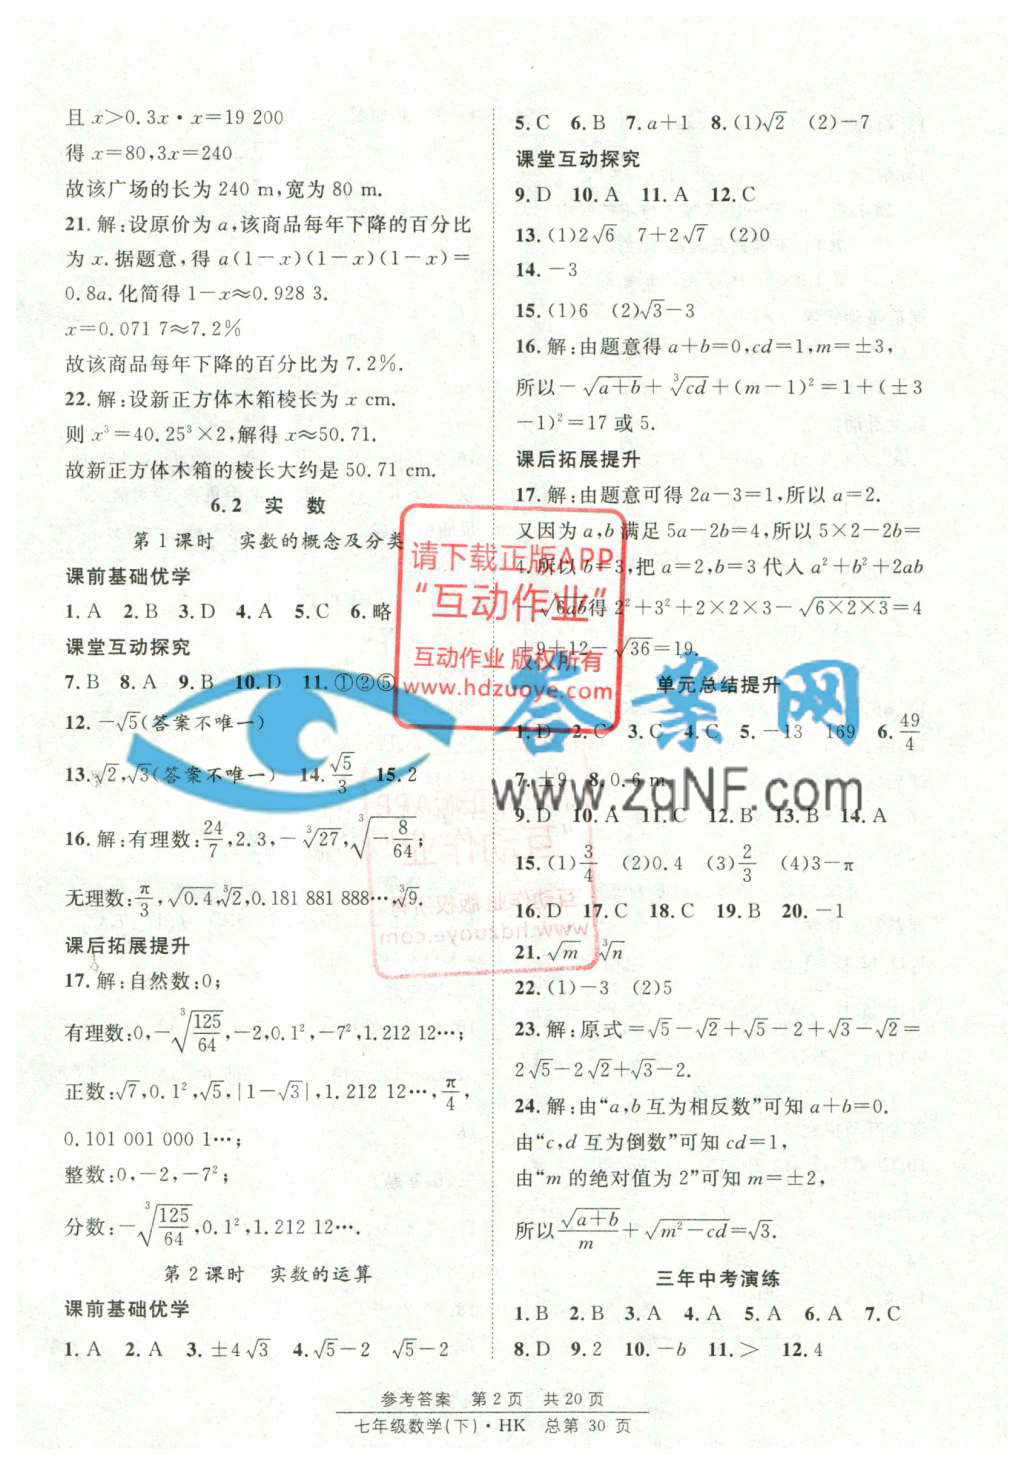 且 x>0.3x·x=19 200
得 x=80,3x=240
故该广场的长为 240 m,宽为 80 m.
21.解:设原价为 a,该商品每年下降的百分比
为 x.据题意,得 a(1-x)(1-x)(1-x)=
0.8a.化简得 1-x≈0.928 3.
x=0.071 7≈7.2%
故该商品每年下降的百分比为 7.2%.
22.解:设新正方体木箱棱长为 x cm.
则 x³=40.25³×2,解得 x≈50.71.
故新正方体木箱的棱长大约是 50.71 cm.
6.2 实 数
第 1 课时 实数的概念及分类
课前基础优学
1.A 2.B 3.D 4.A 5.C 6.略
课堂互动探究
7.B 8.A 9.B 10.D 11.①②⑤
12.-√5(答案不唯一)
13.√2,√3(答案不唯一) 14.√5/3 15.2
16.解:有理数:24/7,2.3,-∛27,∛(-8/64);
无理数:π/3,√0.4,∛2,0.181 881 888…,∛9.
课后拓展提升
17.解:自然数:0;
有理数:0,-∛(125/64),-2,0.1²,-7²,1.212 12…;
正数:√7,0.1²,√5,|1-√3|,1.212 12…,π/4,
0.101 001 000 1…;
整数:0,-2,-7²;
分数:-∛(125/64),0.1²,1.212 12….
第 2 课时 实数的运算
课前基础优学
1.A 2.A 3.±4√3 4.√5-2 √5-2
5.C 6.B 7.a+1 8.(1)√2 (2)-7
课堂互动探究
9.D 10.A 11.A 12.C
13.(1)2√6 7+2√7 (2)0
14.-3
15.(1)6 (2)√3-3
16.解:由题意得 a+b=0,cd=1,m=±3,
所以-√(a+b)+∛(cd)+(m-1)²=1+(±3
-1)²=17 或 5.
课后拓展提升
17.解:由题意可得 2a-3=1,所以 a=2.
又因为 a,b 满足 5a-2b=4,所以 5×2-2b=
4.所以 b=3,把 a=2,b=3 代入 a²+b²+2ab
-√(6ab)得 2²+3²+2×2×3-√(6×2×3)=4
+9+12-√36=19.
单元总结提升
1.D 2.C 3.C 4.C 5.-13 169 6.49/4
7.±9 8.0.6 m
9.D 10.A 11.C 12.B 13.B 14.A
15.(1)3/4 (2)0.4 (3)2/3 (4)3-π
16.D 17.C 18.C 19.B 20.-1
21.√m ∛n
22.(1)-3 (2)5
23.解:原式=√5-√2+√5-2+√3-√2=
2√5-2√2+√3-2.
24.解:由“a,b 互为相反数”可知 a+b=0.
由“c,d 互为倒数”可知 cd=1,
由“m 的绝对值为 2”可知 m=±2,
所以√(a+b)/m+√(m²-cd)=√3.
三年中考演练
1.B 2.B 3.A 4.A 5.A 6.A 7.C
8.D 9.2 10.-b 11.> 12.4
请下载正版APP
“互动作业”
互动作业 版权所有
www.hdzuoye.com
答案网
www.zqNF.com
参考答案 第 2 页 共 20 页
七年级数学(下)·HK 总第 30 页